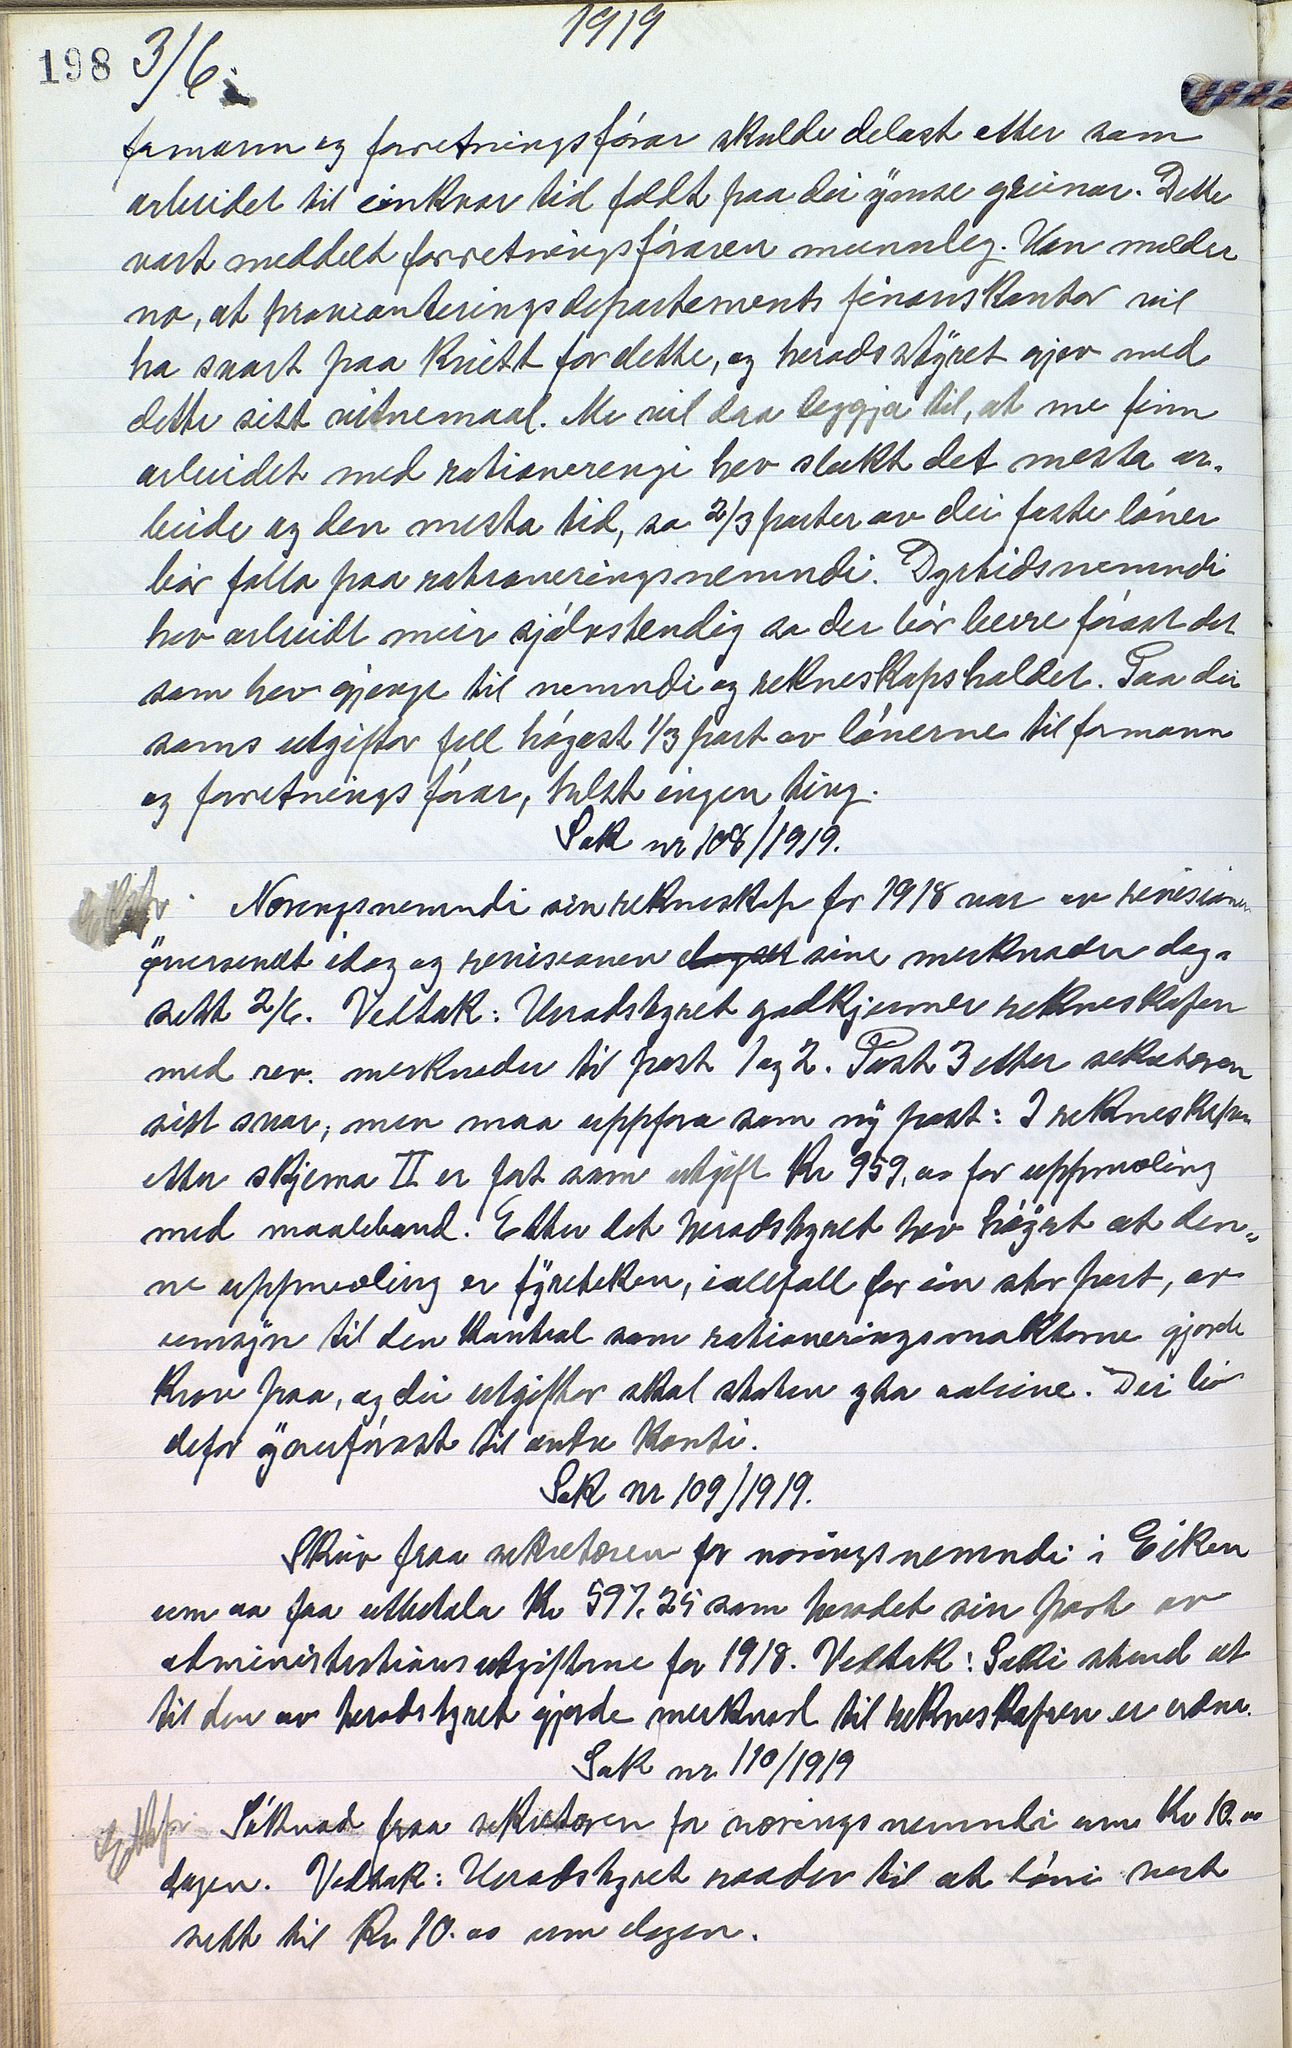 1919
198 3/6.
formann og forretningsförar skulde delast etter som
arbeidet til einkvar tid fallt paa dei ymse greinar. Dette
vart meddelt forretningsföraren munnleg. Han melder
no, at provianteringsdepartements finanskontor vil
ha svart paa kvitt for dette, og heradsstyret gjev med
dette sitt vitnemaal. Me vil daa leggja til, at me finn
arbeidet med rationeringi hev slukt det mesta ar-
beide og den mesta tid, so 2/3 parter av dei faste löner
bör falla paa rationeringsnemndi. Dyrtidsnemndi
hev arbeidt meir sjölvstendig so der bör berre förast det
som hev gjenge til nemndi og rekneskapshaldet. Paa dei
sams utgifter fell högast 1/3 part av lönerne til formann
og forretningsförar, helst ingen ting.
Sak nr 108/1919.
Næringsnemndi sin rekneskap for 1918 var av revisionen
oversendt idag og revisionen sine merknader dag-
sett 2/6. Vedtak: Heradstyret godkjenner rekneskapen
med rev. merknader til post 1 og 2. Post 3 etter sekretæren
sitt svar, men maa uppföra som ny post: I rekneskapen
etter skjema II er fört som utgift Kr 959,00 for uppmæling
med maaleband. Etter det heradstyret hev högrt at den-
ne uppmæling er fyreteken, iallfall for ein stor part, av
umsyn til den kontrol som rationeringsmakterne gjorde
krav paa, og dei utgifter skal staten yta aaleine. Dei bör
defor överförast til andre konti.
Sak nr 109/1919.
Skriv fraa sekretæren for næringsnemndi i Eiken
um aa faa utbetala Kr 597.25 som heradet sin part av
administrationsutgifterne for 1918. Vedtak: Saki stend ut
til den av heradstyret gjorde merknad til rekneskapen er ordna.
Sak nr 110/1919
Söknad fraa sekretæren for næringsnemndi um Kr 10.00
dagen. Vedtak: Heradstyret raader til at löni vert
sett til Kr 10.00 um dagen.